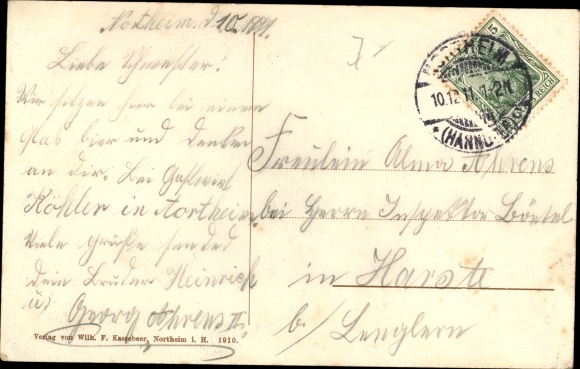 Northeim d 10.
Liebe Schwester!
Wir sitzen hier bei einem
glas bier und denken
an dir. Bei Gastwirt
Köhler in Northeim.
Viele grüße sended
dein Bruder Heinrich
u) Georg Ahrens II.
Verlag von Wilh. F. Kassebeer, Northeim i. H. 1910.
5
REICH
NORTHEIM
10.12.11.7-2N
* (HANNOVER)
Fräulein Alma Ahrens
bei Herrn Inspektor
in Harste
b/ Lenglern